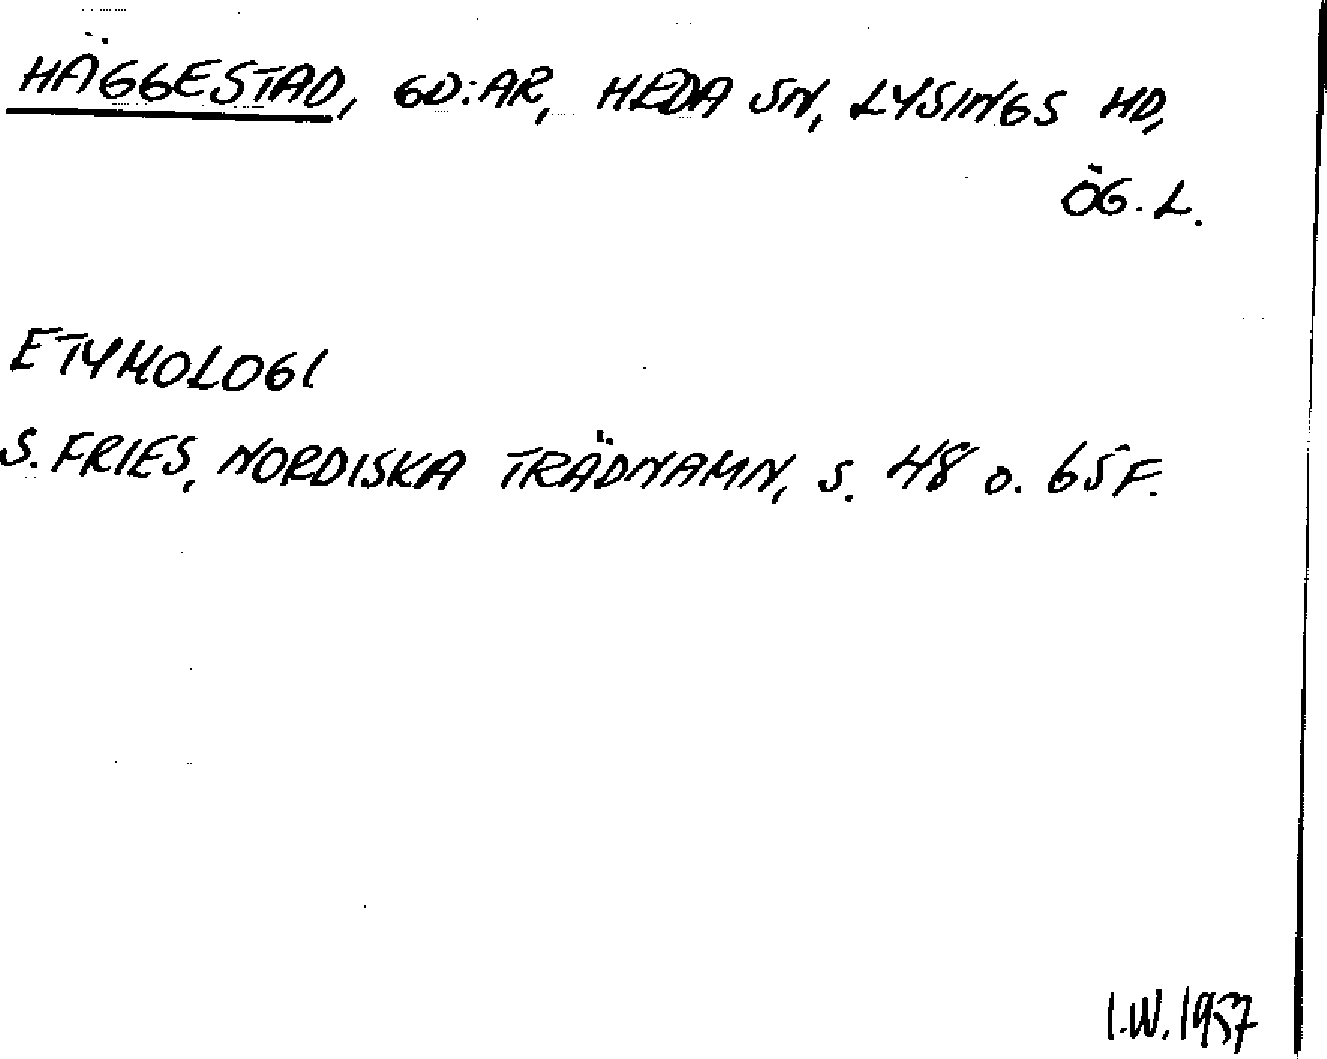 HÄGGESTAD, GD:AR, HEDA SN, LYSINGS HD,
ÖG. L.
ETYMOLOGI
S. FRIES, NORDISKA TRÄDNAMN, S. 48 O. 65 F.
I.W. 1957